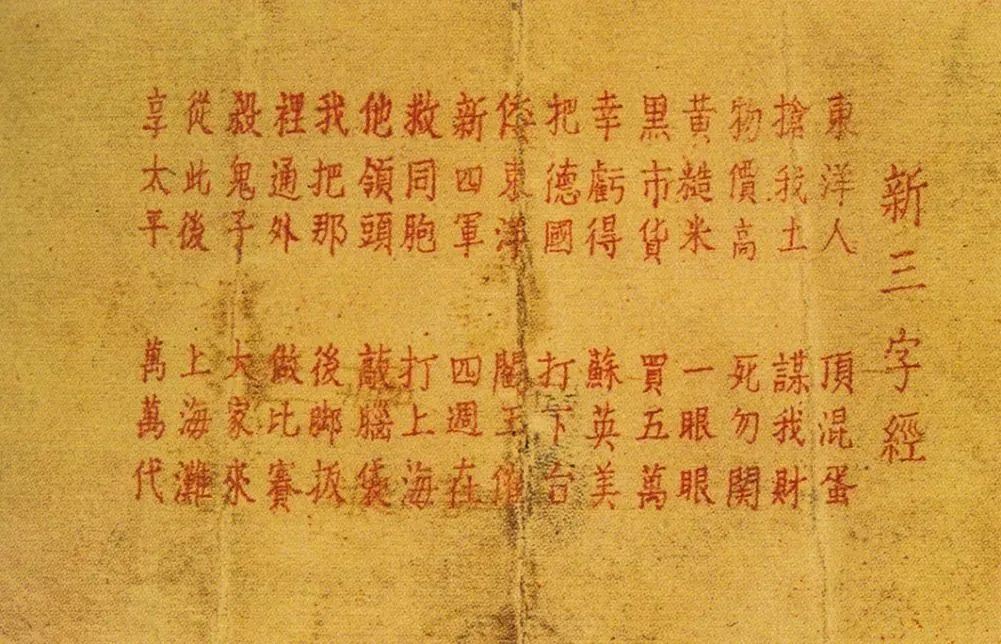 新三字經
東洋人 頂混蛋
搶我土 謀我財
物價高 死勿関
黃糙米 一眼眼
黑市貨 買五萬
幸虧得 蘇英美
把德國 打下台
東洋 閻王催
新四軍 四週在
救同胞 打上海
他領頭 敲腦袋
我把那 後脚扳
裡通外 做比賽
殺鬼子 大家來
從此後 上海灘
享太平 萬萬代